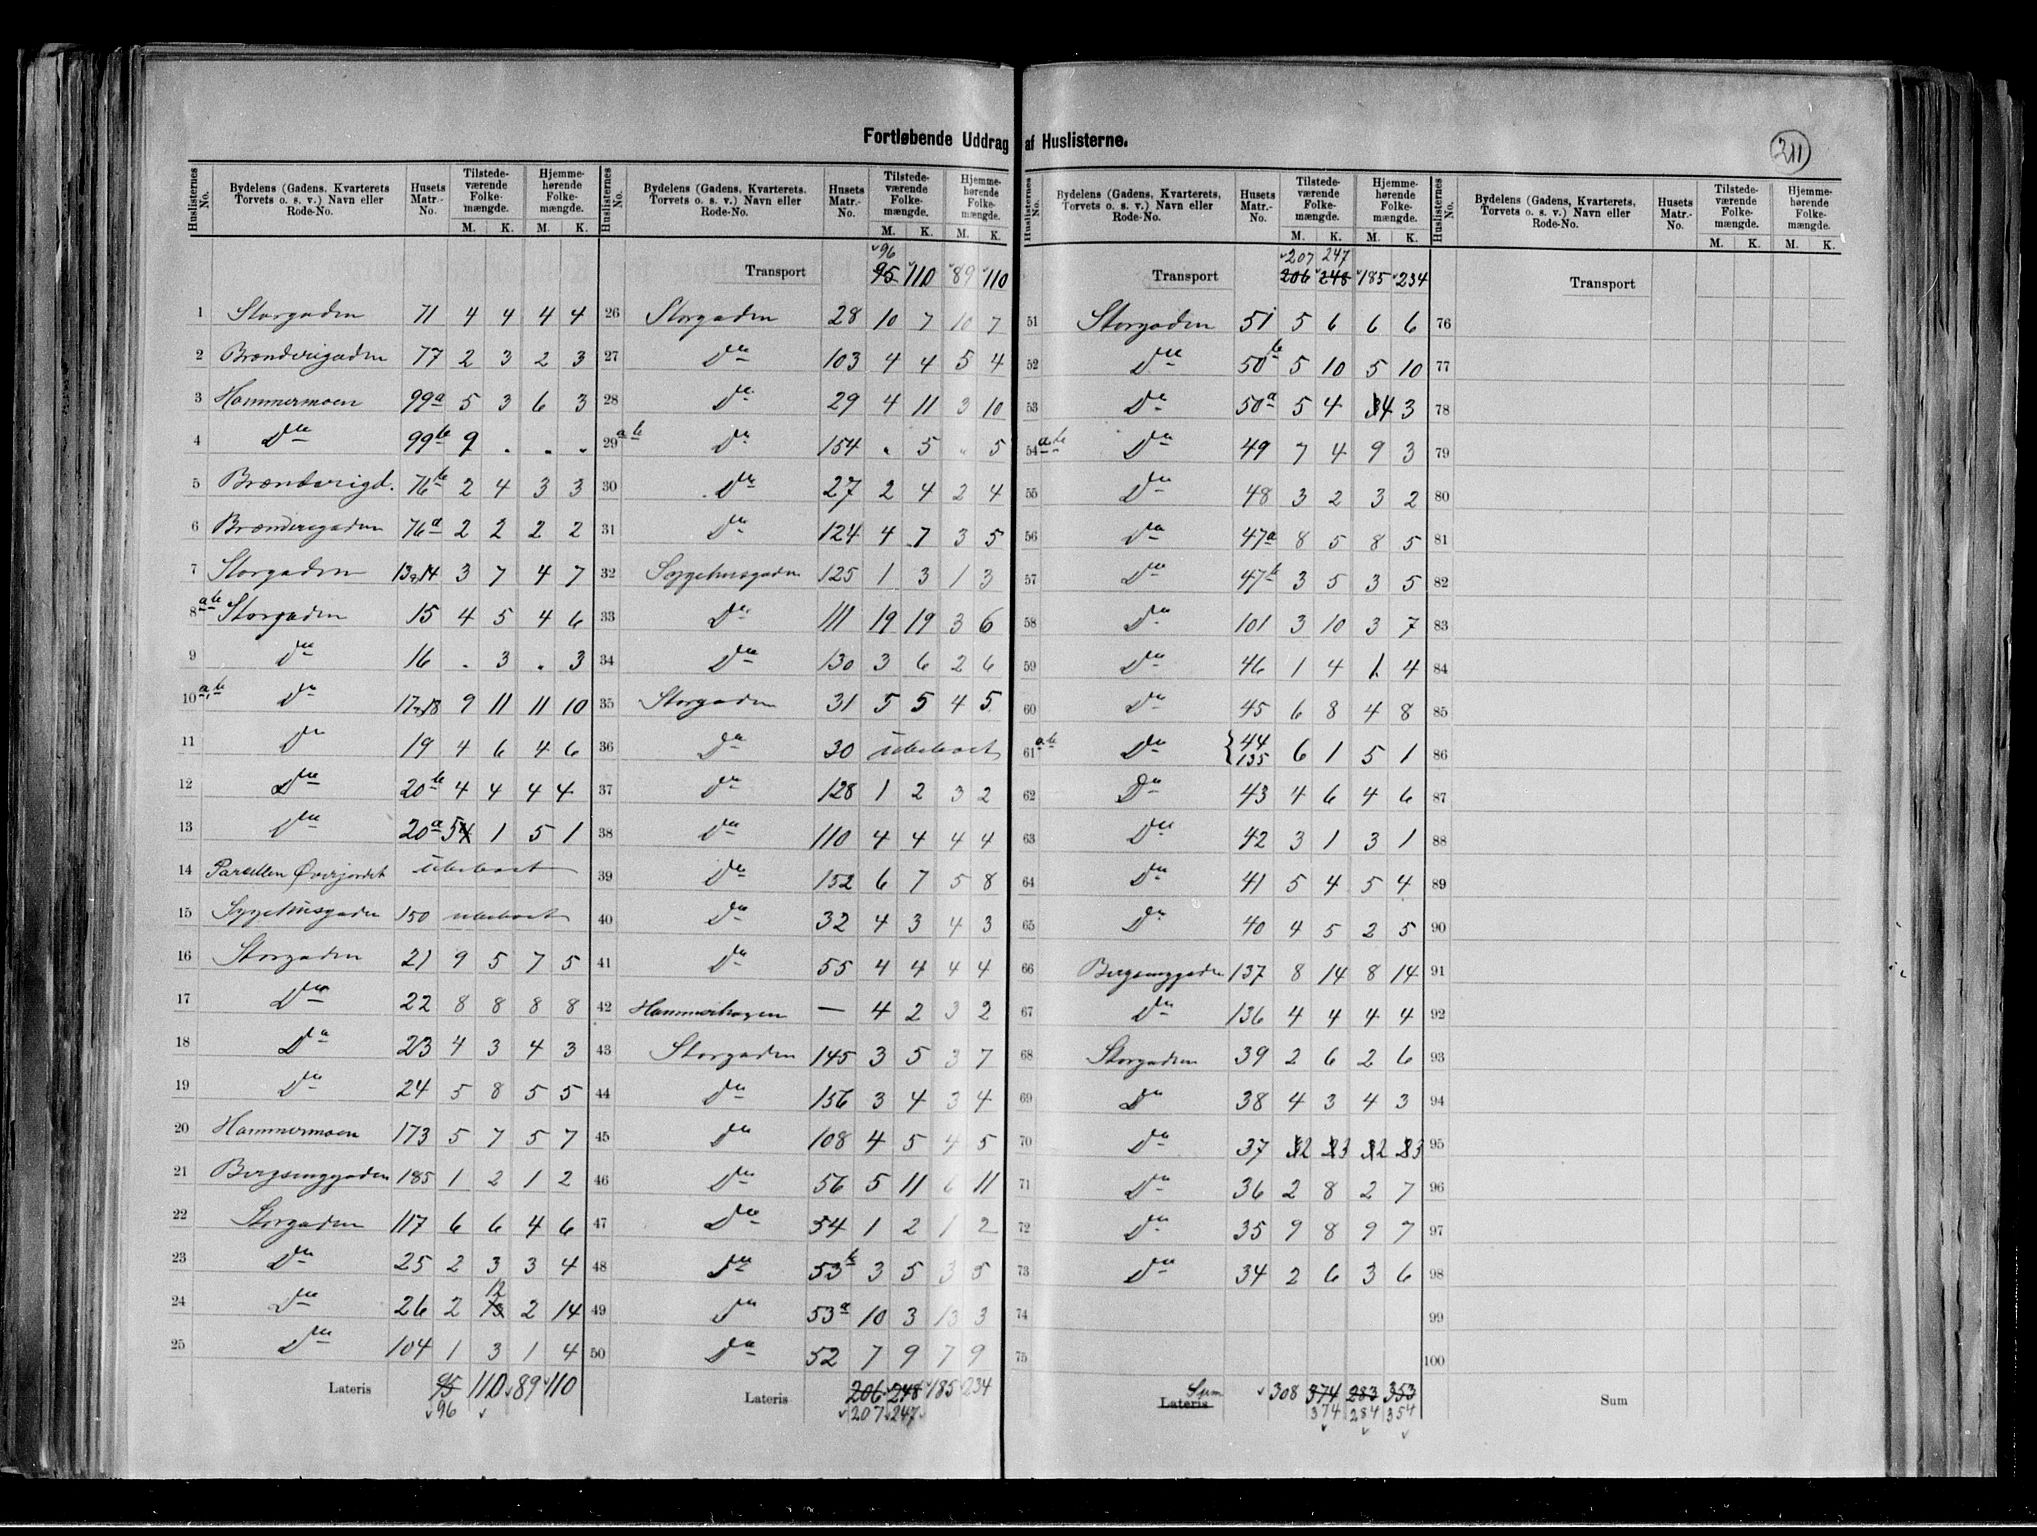 Fortløbende Uddrag af Huslisterne.
211
Huslisternes No. | Bydelens (Gadens, Kvarterets Torvets o. s. v.) Navn eller Rode-No. | Husets Matr.-No. | Tilstedeværende Folkemængde. M. K. | Hjemmehørende Folkemængde. M. K.
1 Storgaden 71 4 4 4 4
2 Brænderigaden 77 2 3 2 3
3 Hammermoen 99a 5 3 6 3
4 Do 99b 9 . . .
5 Brænderigd. 76b 2 4 3 3
6 Brænderigaden 76a 2 2 2 2
7 Storgaden 13 & 14 3 7 4 7
8 a b Storgaden 15 4 5 4 6
9 Do 16 . 3 . 3
10 a b Do 17 & 18 9 11 11 10
11 Do 19 4 6 4 6
12 Do 20b 4 4 4 4
13 Do 20a 5 1 5 1
14 Parcellen Øverjordet ubeboet
15 Sygehusgaden 150 ubeboet
16 Storgaden 21 9 5 7 5
17 Do 22 8 8 8 8
18 Do 23 4 3 4 3
19 Do 24 5 8 5 5
20 Hammermoen 173 5 7 5 7
21 Bergsenggaden 185 1 2 1 2
22 Storgaden 117 6 6 4 6
23 Do 25 2 3 3 4
24 Do 26 2 12 2 14
25 Do 104 1 3 1 4
Lateris 95 110 89 110
96
Huslisternes No. | Bydelens (Gadens, Kvarterets, Torvets o. s. v.) Navn eller Rode-No. | Husets Matr.-No. | Tilstedeværende Folkemængde. M. K. | Hjemmehørende Folkemængde. M. K.
96
Transport 95 110 89 110
26 Storgaden 28 10 7 10 7
27 Do 103 4 4 5 4
28 Do 29 4 11 3 10
29 a b Do 154 . 5 . 5
30 Do 27 2 4 2 4
31 Do 124 4 7 3 5
32 Sygehusgaden 125 1 3 1 3
33 Do 111 19 19 3 6
34 Do 130 3 6 2 6
35 Storgaden 31 5 5 4 5
36 Do 30 ubeboet
37 Do 128 1 2 3 2
38 Do 110 4 4 4 4
39 Do 152 6 7 5 8
40 Do 32 4 3 4 3
41 Do 55 4 4 4 4
42 Hammerhagen — 4 2 3 2
43 Storgaden 145 3 5 3 7
44 Do 156 3 4 3 4
45 Do 108 4 5 4 5
46 Do 56 5 11 6 11
47 Do 54 1 2 1 2
48 Do 53b 3 5 3 5
49 Do 53a 10 3 13 3
50 Do 52 7 9 7 9
Lateris 206 248 185 234
207 247
Huslisternes No. | Bydelens (Gadens, Kvarterets, Torvets o. s. v.) Navn eller Rode-No. | Husets Matr.-No. | Tilstedeværende Folkemængde. M. K. | Hjemmehørende Folkemængde. M. K.
207 247
Transport 206 248 185 234
51 Storgaden 51 5 6 6 6
52 Do 50b 5 10 5 10
53 Do 50a 5 4 4 3
54 a b Do 49 7 4 9 3
55 Do 48 3 2 3 2
56 Do 47a 8 5 8 5
57 Do 47b 3 5 3 5
58 Do 101 3 10 3 7
59 Do 46 1 4 1 4
60 Do 45 6 8 4 8
61 a b Do { 44 135 6 1 5 1
62 Do 43 4 6 4 6
63 Do 42 3 1 3 1
64 Do 41 5 4 5 4
65 Do 40 4 5 2 5
66 Bergsenggaden 137 8 14 8 14
67 Do 136 4 4 4 4
68 Storgaden 39 2 6 2 6
69 Do 38 4 3 4 3
70 Do 37 2 3 2 3
71 Do 36 2 8 2 7
72 Do 35 9 8 9 7
73 Do 34 2 6 3 6
74
75
Sum
Lateris 308 374 283 353
374 284 354
Huslisternes No. | Bydelens (Gadens, Kvarterets, Torvets o. s. v.) Navn eller Rode-No. | Husets Matr.-No. | Tilstedeværende Folkemængde. M. K. | Hjemmehørende Folkemængde. M. K.
Transport
76
77
78
79
80
81
82
83
84
85
86
87
88
89
90
91
92
93
94
95
96
97
98
99
100
Sum